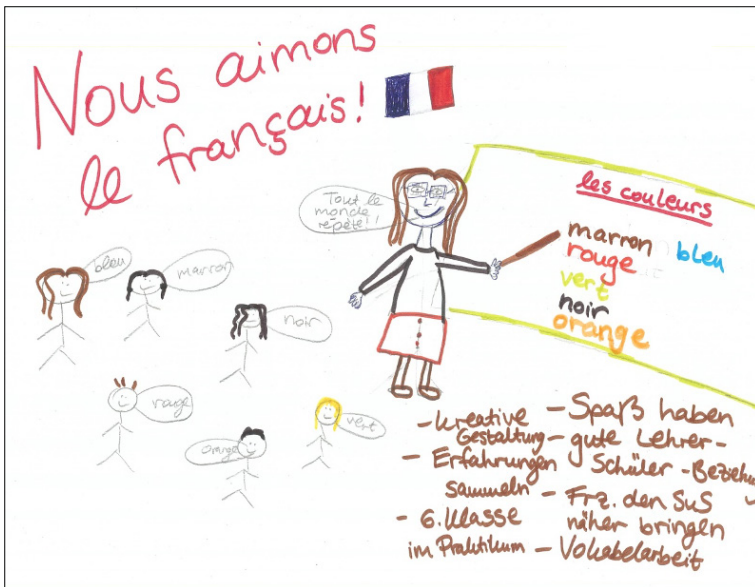 Nous aimons
le français!
Tout le
monde
répète!
les couleurs
marron bleu
rouge
vert
noir
orange
bleu
marron
noir
rouge
orange
vert
- kreative
Gestaltung
- Erfahrungen
sammeln
- 6. Klasse
im Praktikum
- Spaß haben
- gute Lehrer-
Schüler-Beziehung
- Frz. den SuS
näher bringen
- Vokabelarbeit